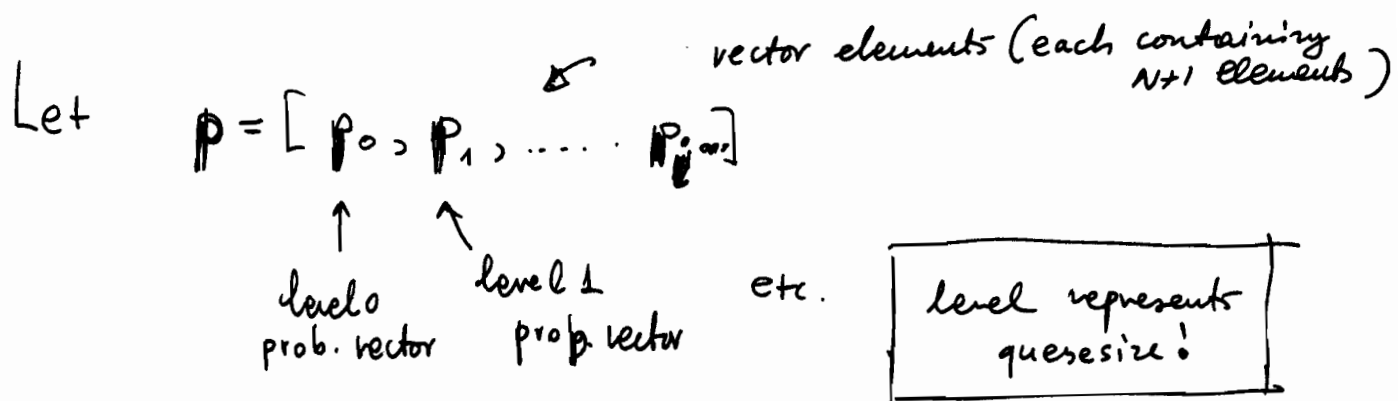 vector elements (each containing
N+1 elements)
Let p = [ p₀, p₁, ..... pᵢ ...]
level 0
prob. vector
level 1
prob. vector
etc.
level represents
quesesize!